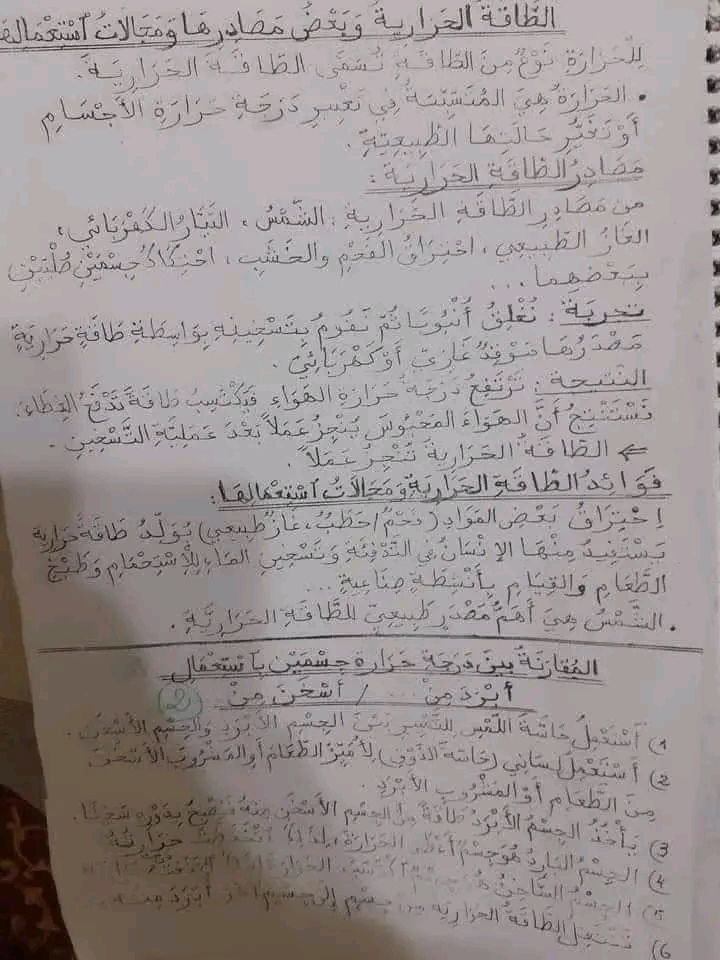 الطَّاقَةُ الحَرَارِيَةُ وَبَعْضُ مَصَادِرِهَا وَمَجَالَاتُ اسْتِعْمَالِهَا
لِلْحَرَارَةِ نَوْعٌ مِنَ الطَّاقَةِ تُسَمَّى الطَّاقَةَ الحَرَارِيَةَ.
• الحَرَارَةُ هِيَ المُتَسَبِّبَةُ فِي تَغْيِيرِ دَرَجَةِ حَرَارَةِ الأَجْسَامِ
أَوْ تَغَيُّرِ حَالَتِهَا الطَّبِيعِيَّةِ.
مَصَادِرُ الطَّاقَةِ الحَرَارِيَةِ:
من مَصَادِرِ الطَّاقَةِ الحَرَارِيَةِ: الشَّمْسُ، التَيَّارُ الكَهْرَبَائِي،
الغَازُ الطَّبِيعِي، احْتِرَاقُ الفَحْمِ والخَشَبِ، احْتِكَاكُ جِسْمَيْنِ صُلْبَيْنِ
بِبَعْضِهِمَا...
تَجْرِبَة: نُغْلِقُ أُنْبُوبًا ثُمَّ نَقُومُ بِتَسْخِينِهِ بِوَاسِطَةِ طَاقَةٍ حَرَارِيَةٍ
مَصْدَرُهَا مَوْقِدٌ غَازِيٌّ أَوْ كَهْرَبَائِيٌّ.
النَتِيجَة: تَرْتَفِعُ دَرَجَةُ حَرَارَةِ الهَوَاءِ فَيَكْتَسِبُ طَاقَةً تَدْفَعُ الغِطَاءَ.
نَسْتَنْتِجُ أَنَّ الهَوَاءَ المَحْبُوسَ يُنْجِزُ عَمَلًا بَعْدَ عَمَلِيَّةِ التَّسْخِينِ.
⇐ الطَّاقَةُ الحَرَارِيَةُ تُنْجِزُ عَمَلًا.
فَوَائِدُ الطَّاقَةِ الحَرَارِيَةِ وَمَجَالَاتُ اسْتِعْمَالِهَا:
اِحْتِرَاقُ بَعْضِ المَوَادِ (فَحْم/حَطَب، غَاز طَبِيعِي) يُوَلِّدُ طَاقَةً حَرَارِيَة
يَسْتَفِيدُ مِنْهَا الإِنْسَانُ فِي التَّدْفِئَةِ وَتَسْخِينِ المَاءِ لِلْاِسْتِحْمَامِ وَطَبْخِ
الطَّعَامِ وَالقِيَامِ بِأَنْشِطَةٍ صِنَاعِيةٍ...
• الشَّمْسُ هِيَ أَهَمُّ مَصْدَرٍ طَبِيعِيٍّ لِلطَّاقَةِ الحَرَارِيَّةِ.
المُقَارَنَةُ بين دَرَجَةِ حَرَارة جِسْمَيْنِ بِاسْتِعْمَالِ
أَبْرَدَ مِنْ ... / أَسْخَنَ مِنْ 2
1) أَسْتَعْمِلُ حَاسَّةَ اللَّمْسِ لِلتَّمْيِيزِ بَيْنَ الجِسْمِ الأَبْرَدِ وَالجِسْمِ الأَسْخَنِ.
2) أَسْتَعْمِلُ لِسَانِي (حَاسَّةَ الذَّوْقِ) لِأُمَيِّزَ الطَّعَامَ أَو المَشْرُوبَ الأَسْخَنَ
مِنَ الطَّعَامِ أَوْ المَشْرُوبِ الأَبْرَدِ.
3) يَأْخُذُ الجِسْمُ الأَبْرَدُ طَاقَةً مِنَ الجِسْمِ الأَسْخَنِ مِنْهُ فَيُصْبِحُ بِدَوْرِهِ سَاخِنًا.
4) الجِسْمُ البَارِدُ هُوَ جِسْمٌ أَعْطَى الحَرَارَةَ، انْخَفَضَتْ حَرَارَتُهُ
5) الجِسْمُ السَّاخِنُ هُوَ جِسْمٌ اكْتَسَبَ الحَرَارَةَ
6) تَنْتَقِلُ الطَّاقَةُ الحَرَارِيَة مِنْ جِسْمٍ إِلَى جِسْمٍ آخَرَ أَبْرَدَ مِنْهُ